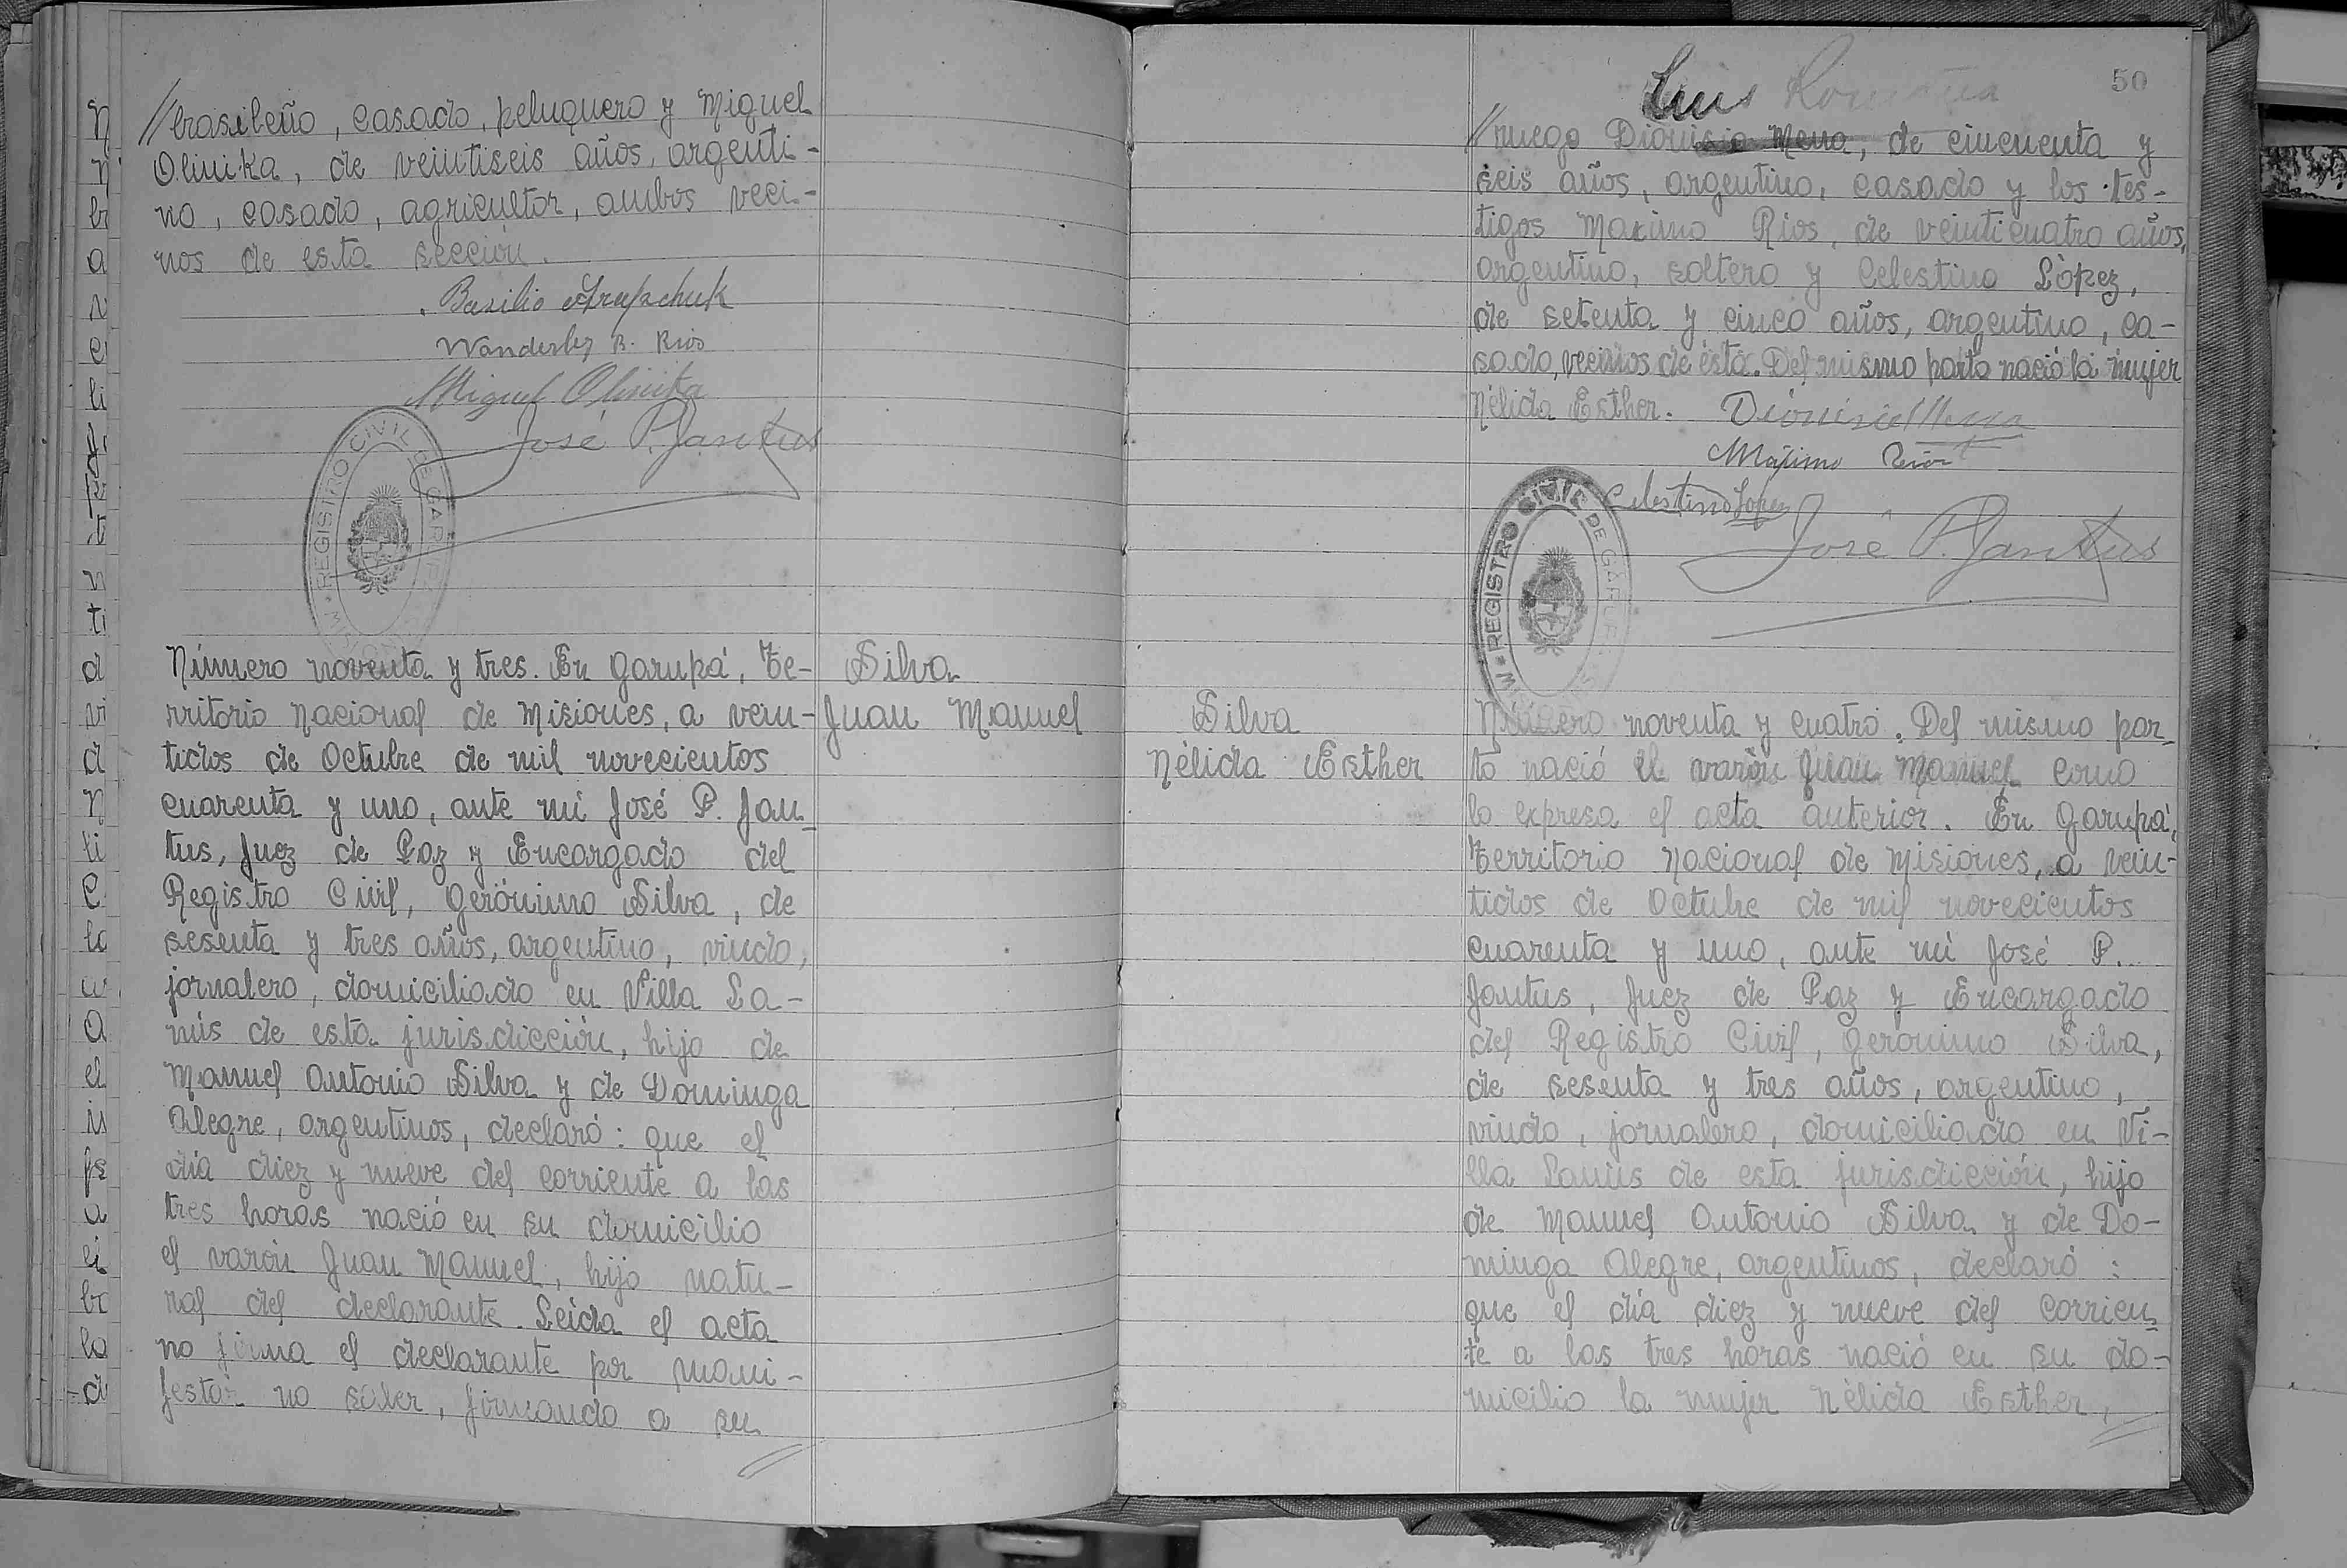 //brasileño, casado, peluquero y Miguel
Olinika, de veintiseis años, argenti-
no, casado, agricultor, ambos veci-
nos de esta sección.
Basilio
Wanderley R. Rios
Miguel Olinika
José P. Jantus
REGISTRO CIVIL DE GARUPÁ
Número noventa y tres. En Garupá, Te-
rritorio Nacional de Misiones, a vein-
tidos de Octubre de mil novecientos
cuarenta y uno, ante mi José P. Jan-
tus, Juez de Paz y Encargado del
Registro Civil, Gerónimo Silva, de
sesenta y tres años, argentino, viudo,
jornalero, domiciliado en Villa La-
nús de esta jurisdicción, hijo de
Manuel Antonio Silva y de Dominga
Alegre, argentinos, declaró: que el
día diez y nueve del corriente a las
tres horas nació en su domicilio
el varón Juan Manuel, hijo natu-
ral del declarante. Leida el acta
no firma el declarante por mani-
festar no saber, firmando a su
//
Silva
Juan Manuel
50
Luis
//ruego Dionisio Mena, de cincuenta y
seis años, argentino, casado y los tes-
tigos Maximo Rios, de veinticuatro años,
argentino, soltero y Celestino López,
de setenta y cinco años, argentino, ca-
sado, vecinos de ésta. Del mismo parto nació la mujer
Nélida Esther. Dionisio Mena
Máximo Rios
Celestino Lopez
José P. Jantus
REGISTRO CIVIL DE GARUPÁ
Silva
Nélida Esther
Número noventa y cuatro. Del mismo par-
to nació el varón Juan Manuel como
lo expresa el acta anterior. En Garupá,
Territorio Nacional de Misiones, a vein-
tidos de Octubre de mil novecientos
cuarenta y uno, ante mi José P.
Jantus, Juez de Paz y Encargado
del Registro Civil, Geronimo Silva,
de sesenta y tres años, argentino,
viudo, jornalero, domiciliado en Vi-
lla Lanús de esta jurisdicción, hijo
de Manuel Antonio Silva y de Do-
minga Alegre, argentinos, declaró:
que el día diez y nueve del corrien-
te a las tres horas nació en su do-
micilio la mujer Nélida Esther,
//